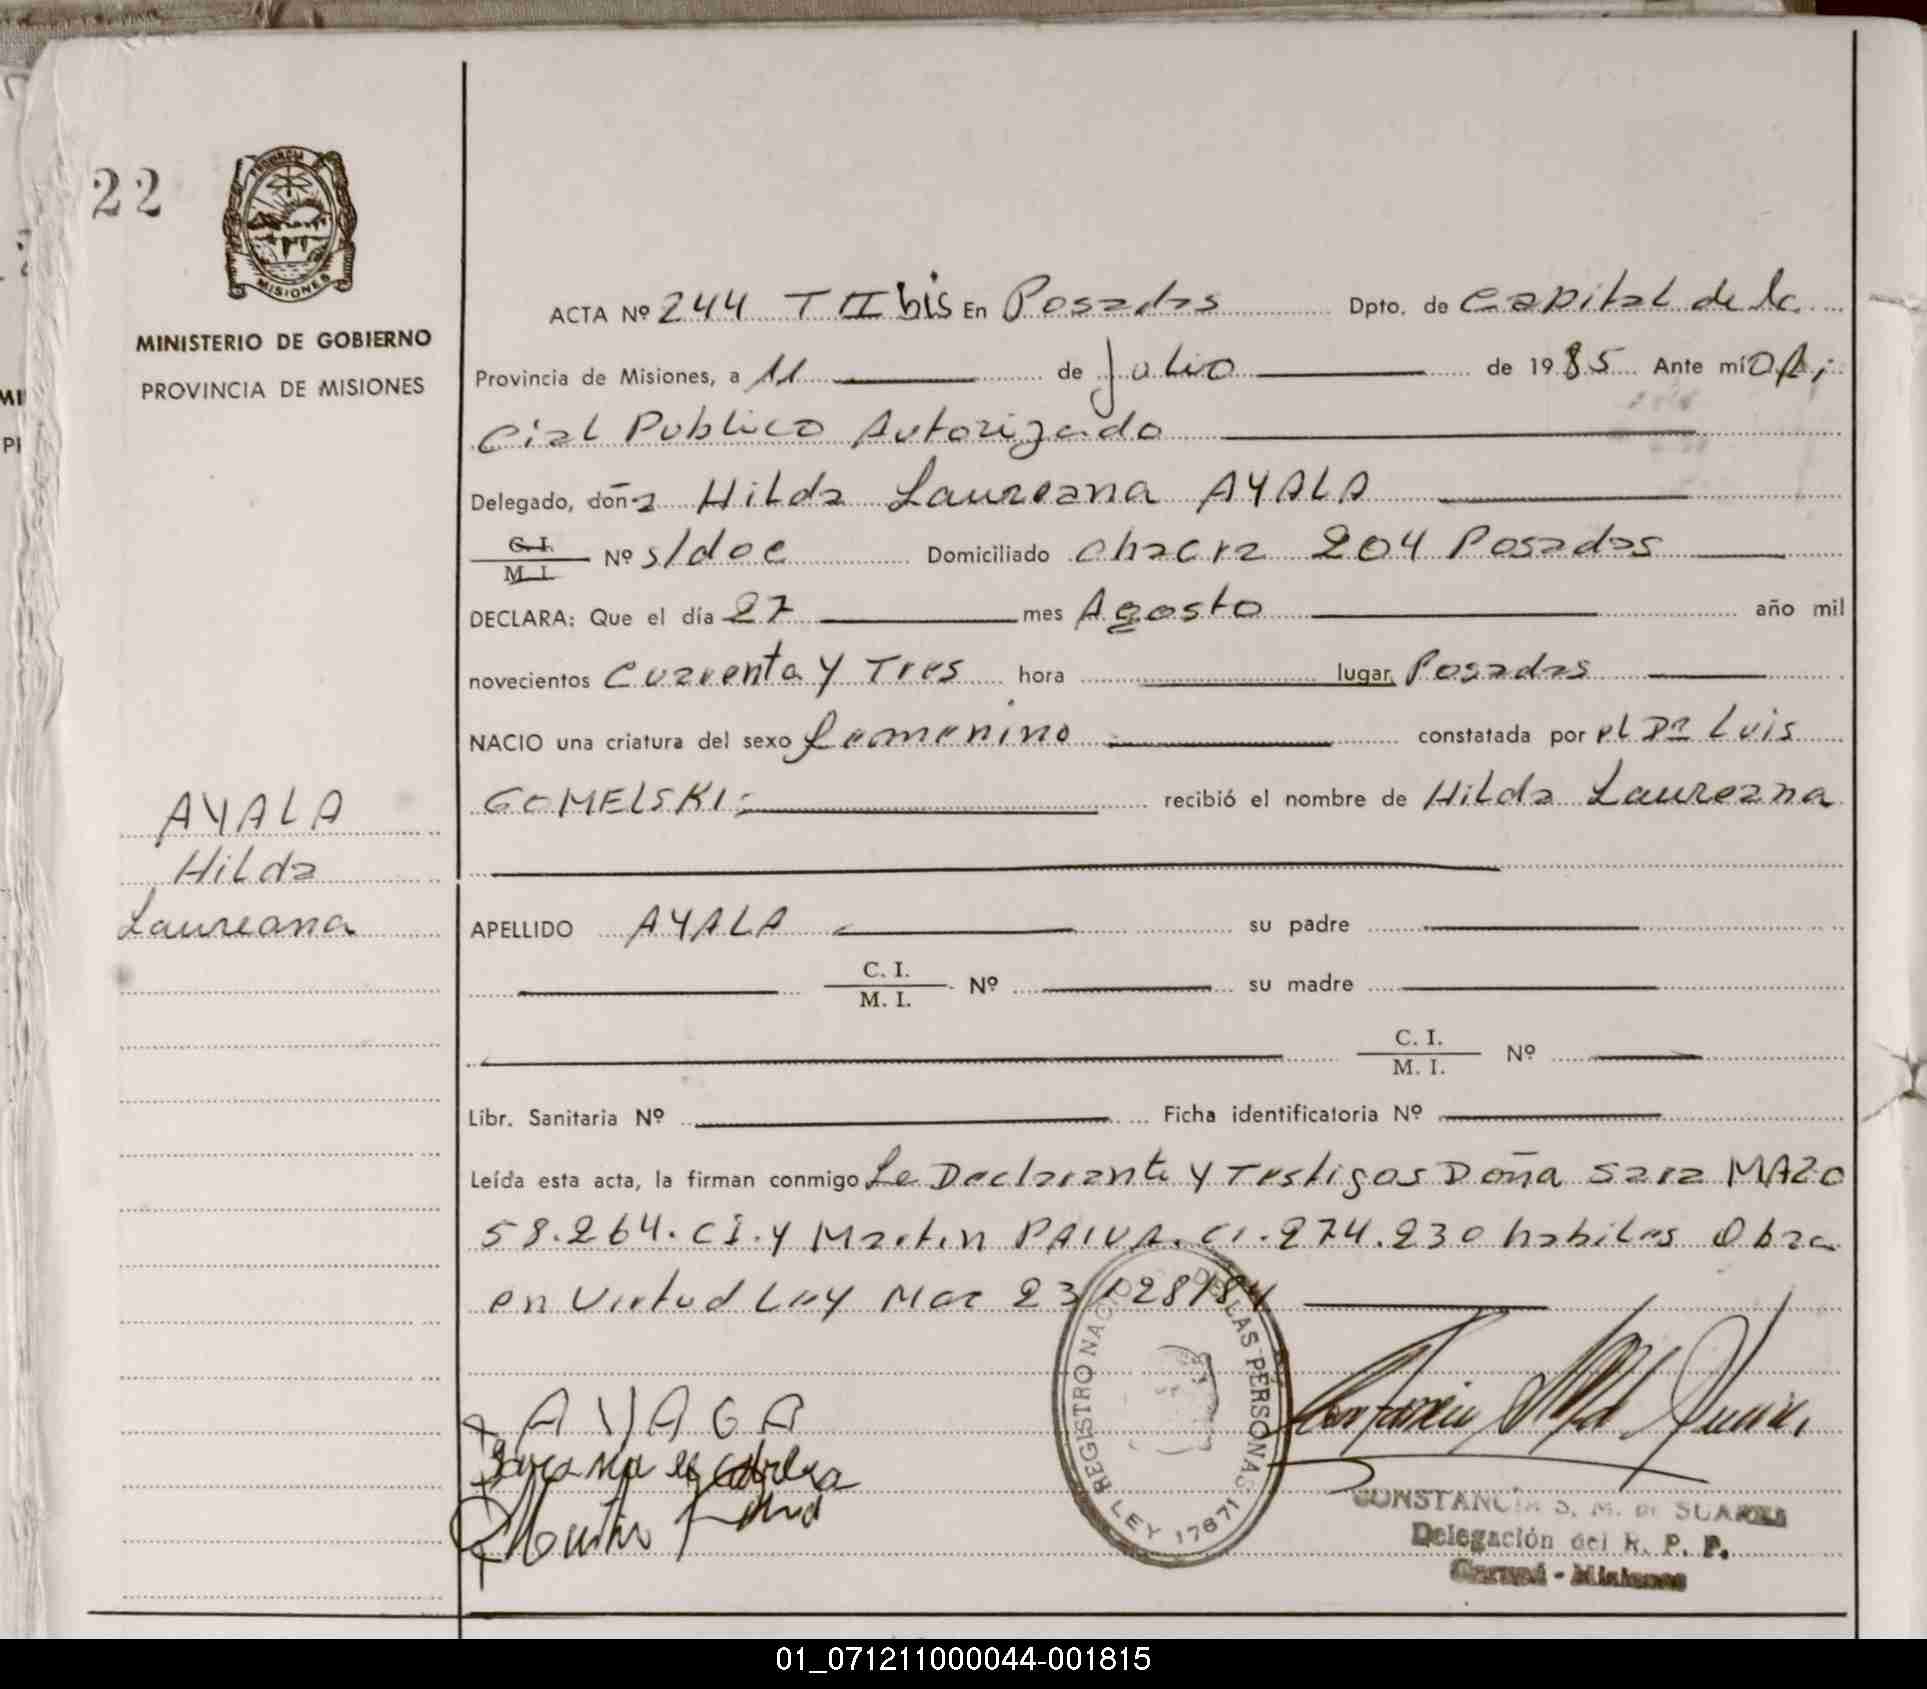 22
PROVINCIA DE
MISIONES
MINISTERIO DE GOBIERNO
PROVINCIA DE MISIONES
AYALA
Hilda
Laureana
ACTA Nº 244 T II bis En Posadas Dpto. de Capital de la
Provincia de Misiones, a 11 de Julio de 1985 Ante mí Ofi-
cial Publico Autorizado
Delegado, doña Hilda Laureana AYALA
C. I.
M. I. Nº s/doc Domiciliado chacra 204 Posadas
DECLARA: Que el día 27 mes Agosto año mil
novecientos Cuarenta y Tres hora lugar Posadas
NACIO una criatura del sexo femenino constatada por el Dr Luis
GOMELSKI recibió el nombre de Hilda Laureana
APELLIDO AYALA su padre
C. I.
M. I. Nº su madre
C. I.
M. I. Nº
Libr. Sanitaria Nº Ficha identificatoria Nº
Leída esta acta, la firman conmigo La Declarante y Testigos Doña Sara MAZO
58.264. CI. y Martin PAIVA. CI. 274.230 habiles Obra
en Virtud Ley Nac 23/128/84
REGISTRO NACIONAL DE LAS PERSONAS
LEY 17671
CONSTANCIA S. M. de SUAREZ
Delegación del R. P. P.
Garupá - Misiones
01_071211000044-001815